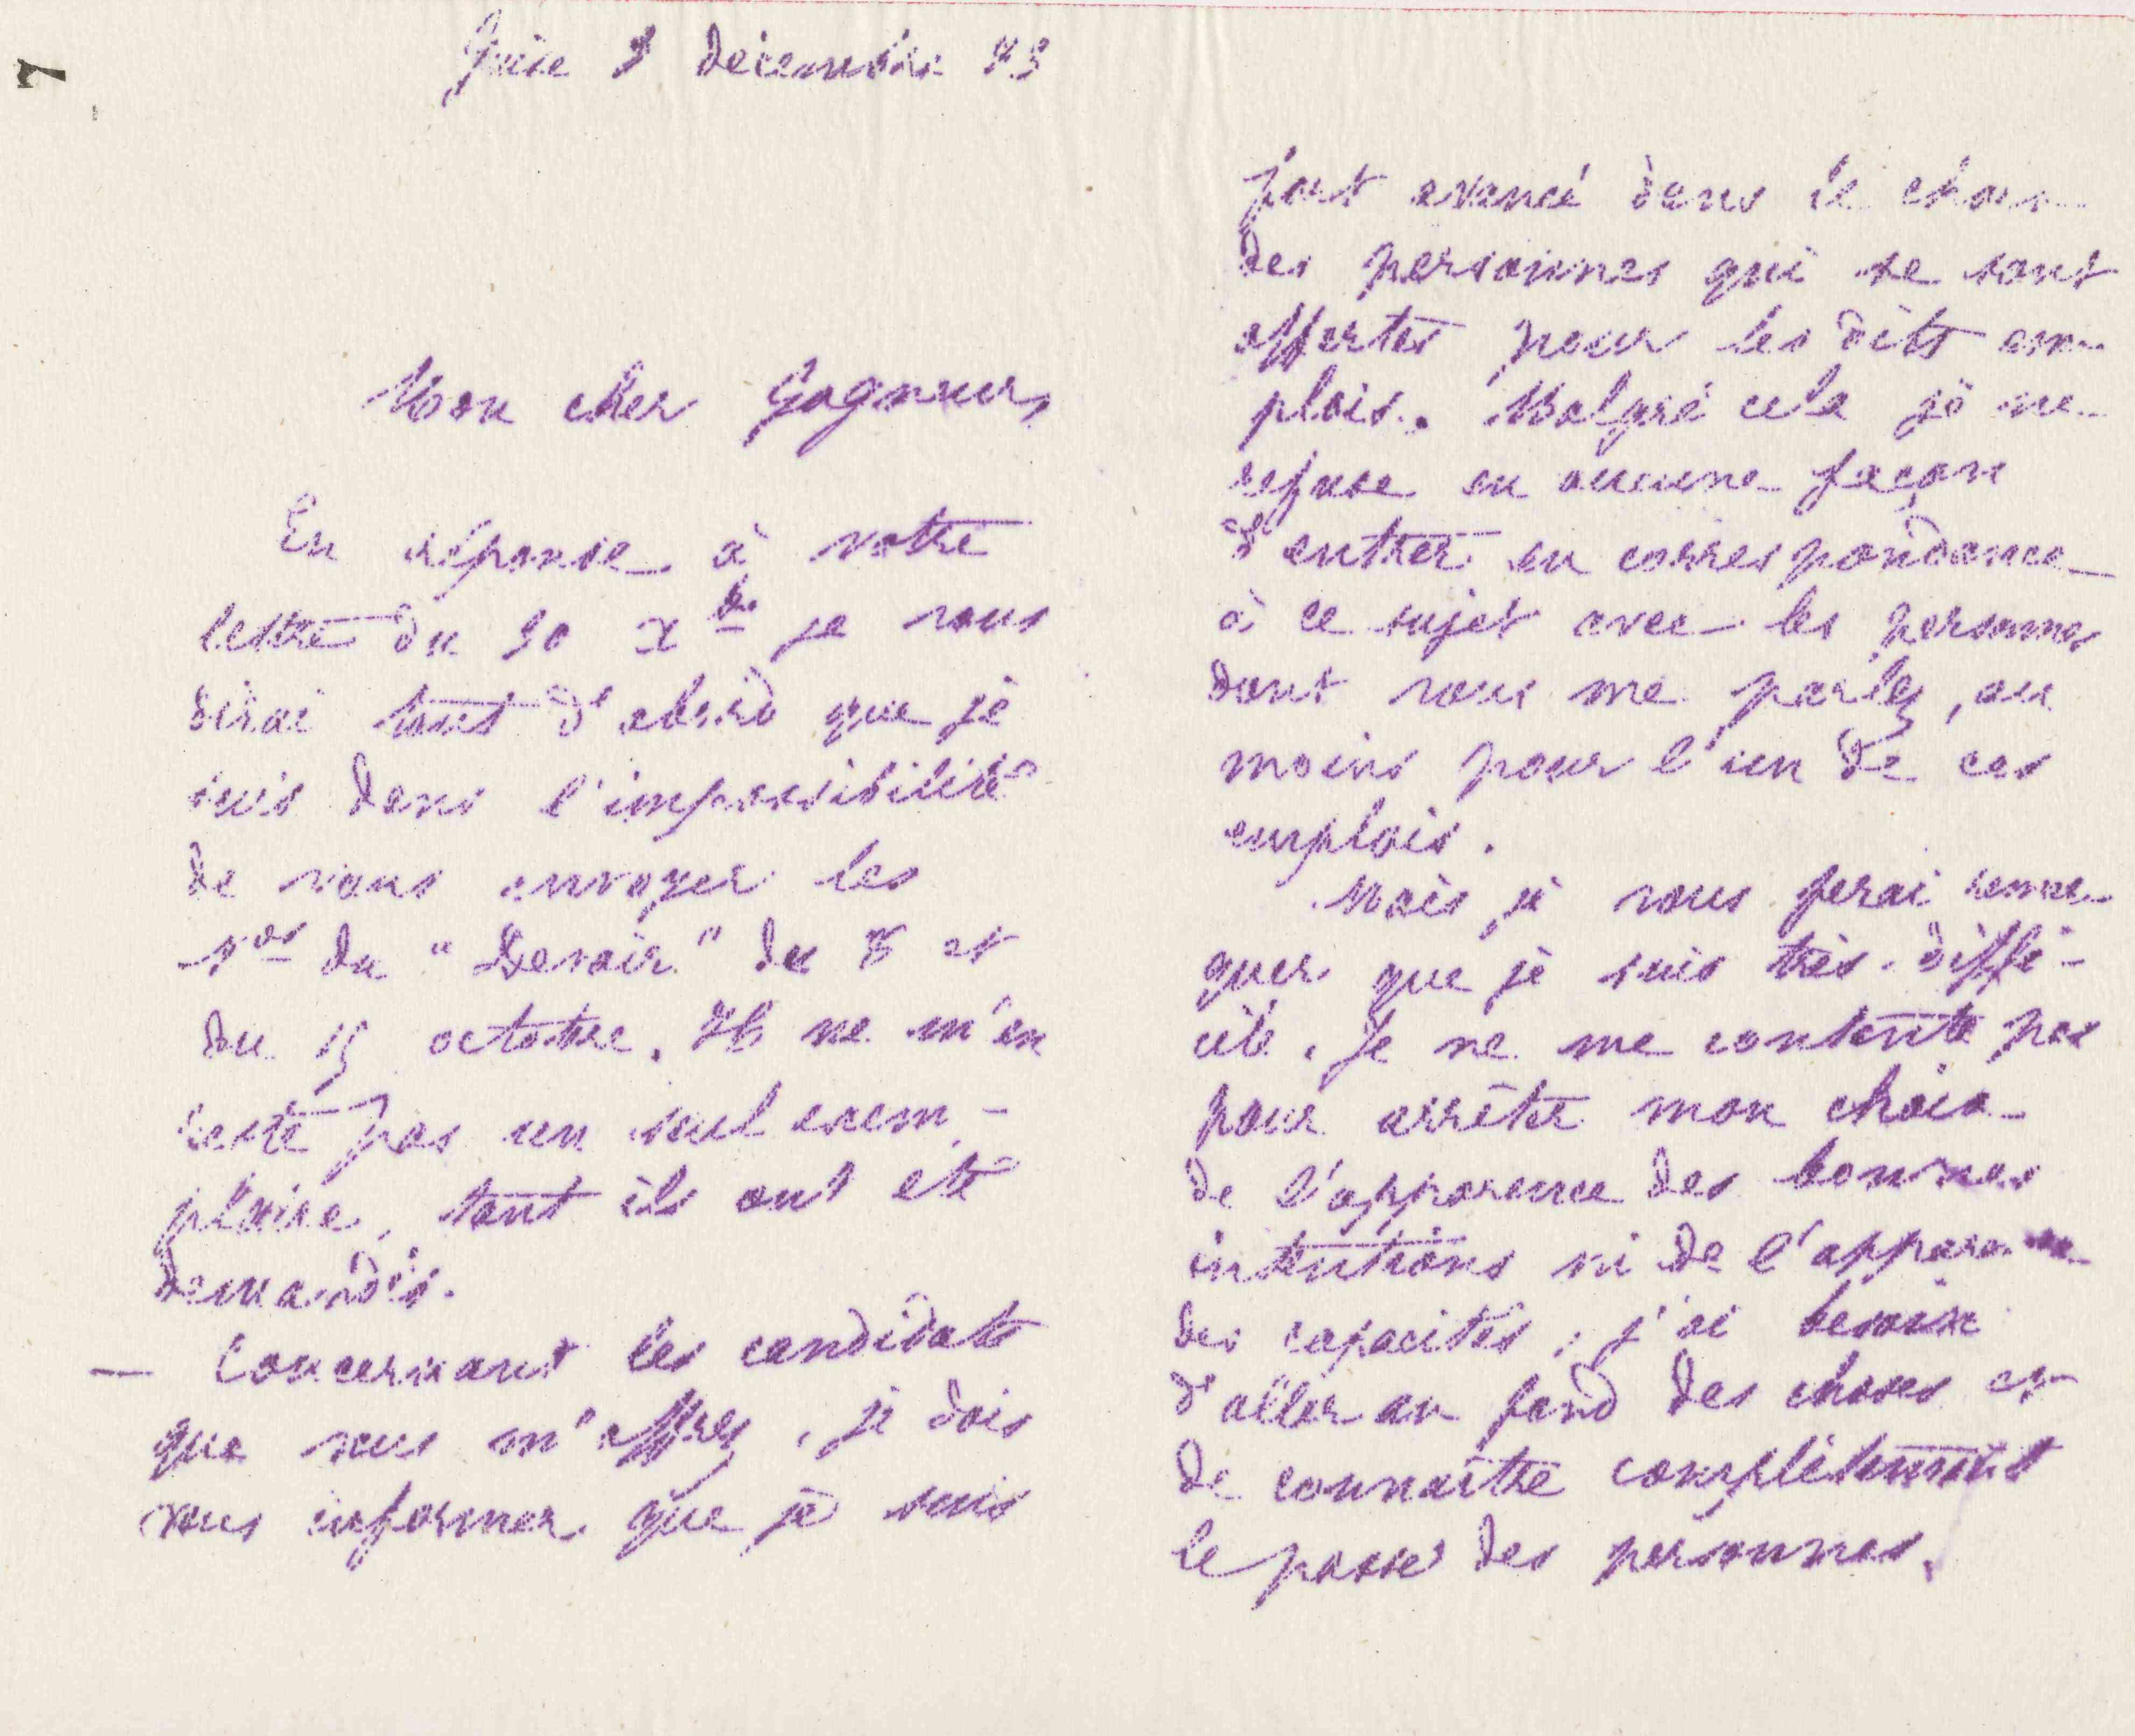 7
Guise 3 décembre 83
Mon cher Gagneur,
En réponse à votre
lettre du 30 xbre je vous
dirai tout d'abord que je
suis dans l'impossibilité
de vous envoyer les
nos du "Devoir" du 8 et
du 15 octobre. Il ne m'en
reste pas un seul exem-
plaire, tant ils ont été
demandés.
— Concernant les candidats
que vous m'offrez, je dois
vous informer que je suis
fort avancé dans le choix
des personnes qui se sont
offertes pour les dits em-
plois. Malgré cela je ne
refuse en aucune façon
d'entrer en correspondance
à ce sujet avec les personnes
dont vous me parlez, au
moins pour l'un de ces
emplois.
Mais je vous ferai remar-
quer que je suis très diffi-
cile. Je ne me contente pas
pour arrêter mon choix
de l'apparence des bonnes
intentions ni de l'apparence
des capacités ; j'ai besoin
d'aller au fond des choses et
de connaître complètement
le passé des personnes.